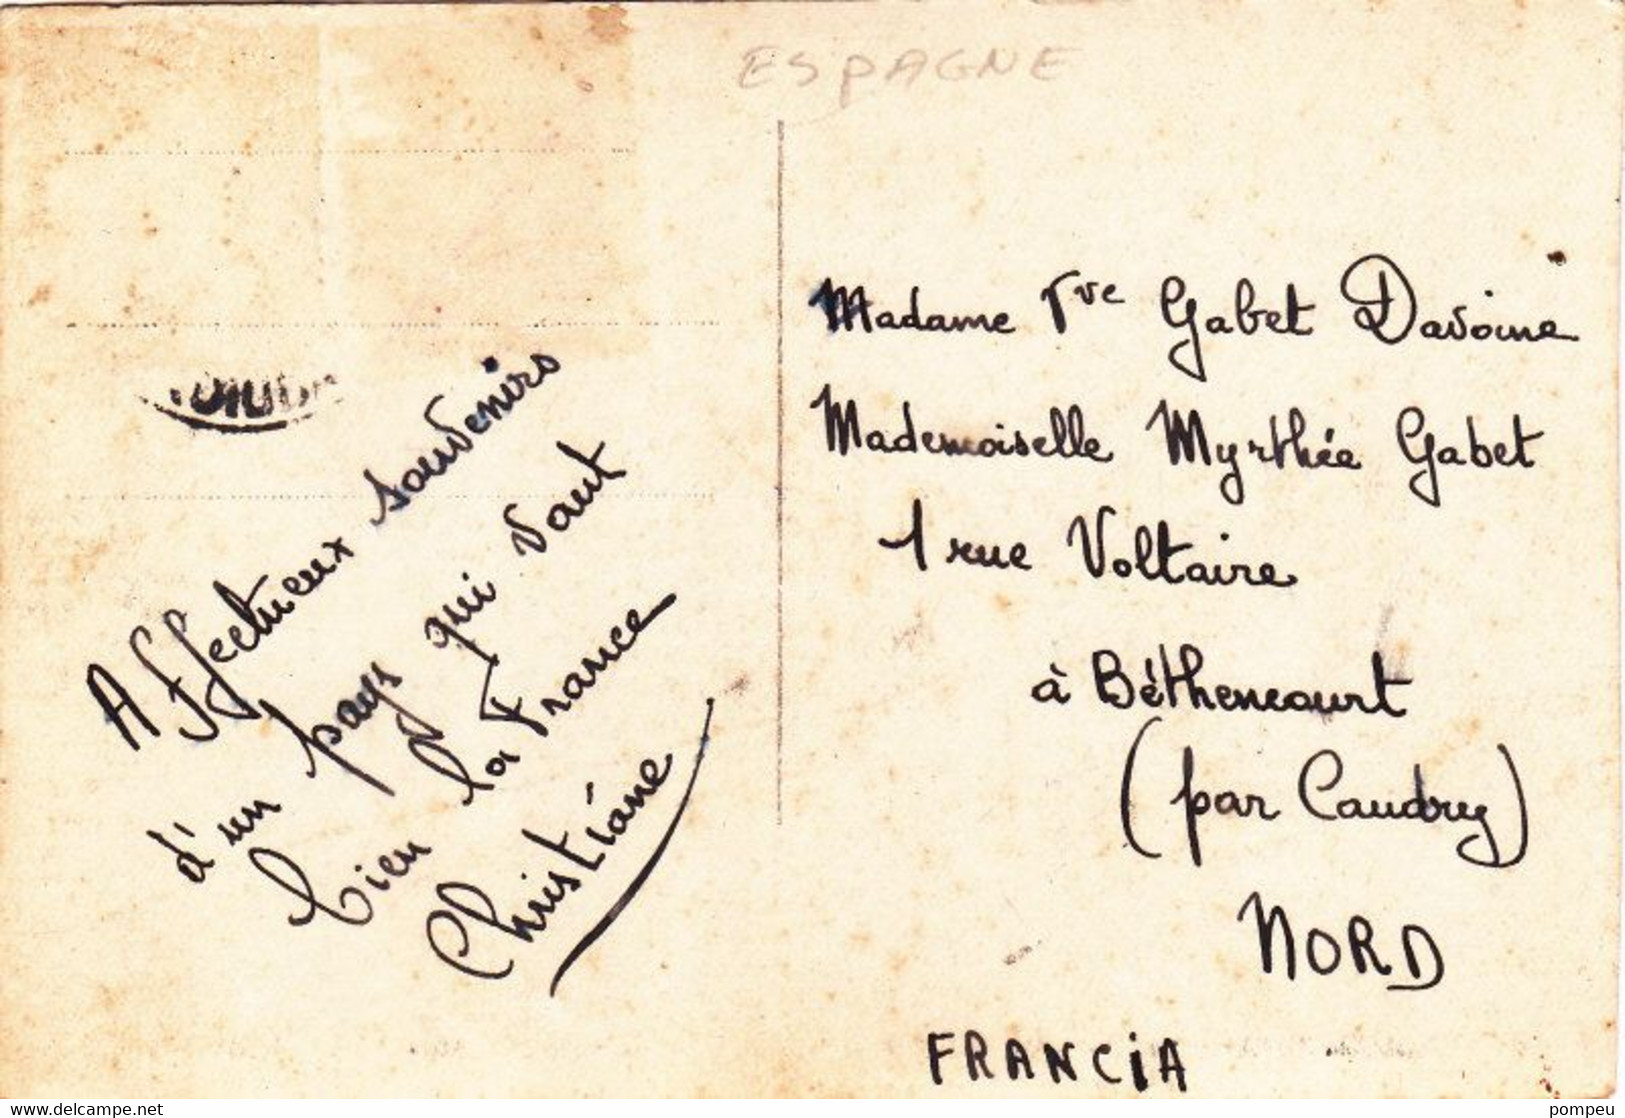 ESPAGNE
Affectueux souvenirs
d'un pays qui vaut
bien la France
Christiane
Madame Vve Gabet Davoine
Mademoiselle Myrthée Gabet
1 rue Voltaire
à Béthencourt
(par Caudry)
NORD
FRANCIA
https://www.delcampe.net
pompeu